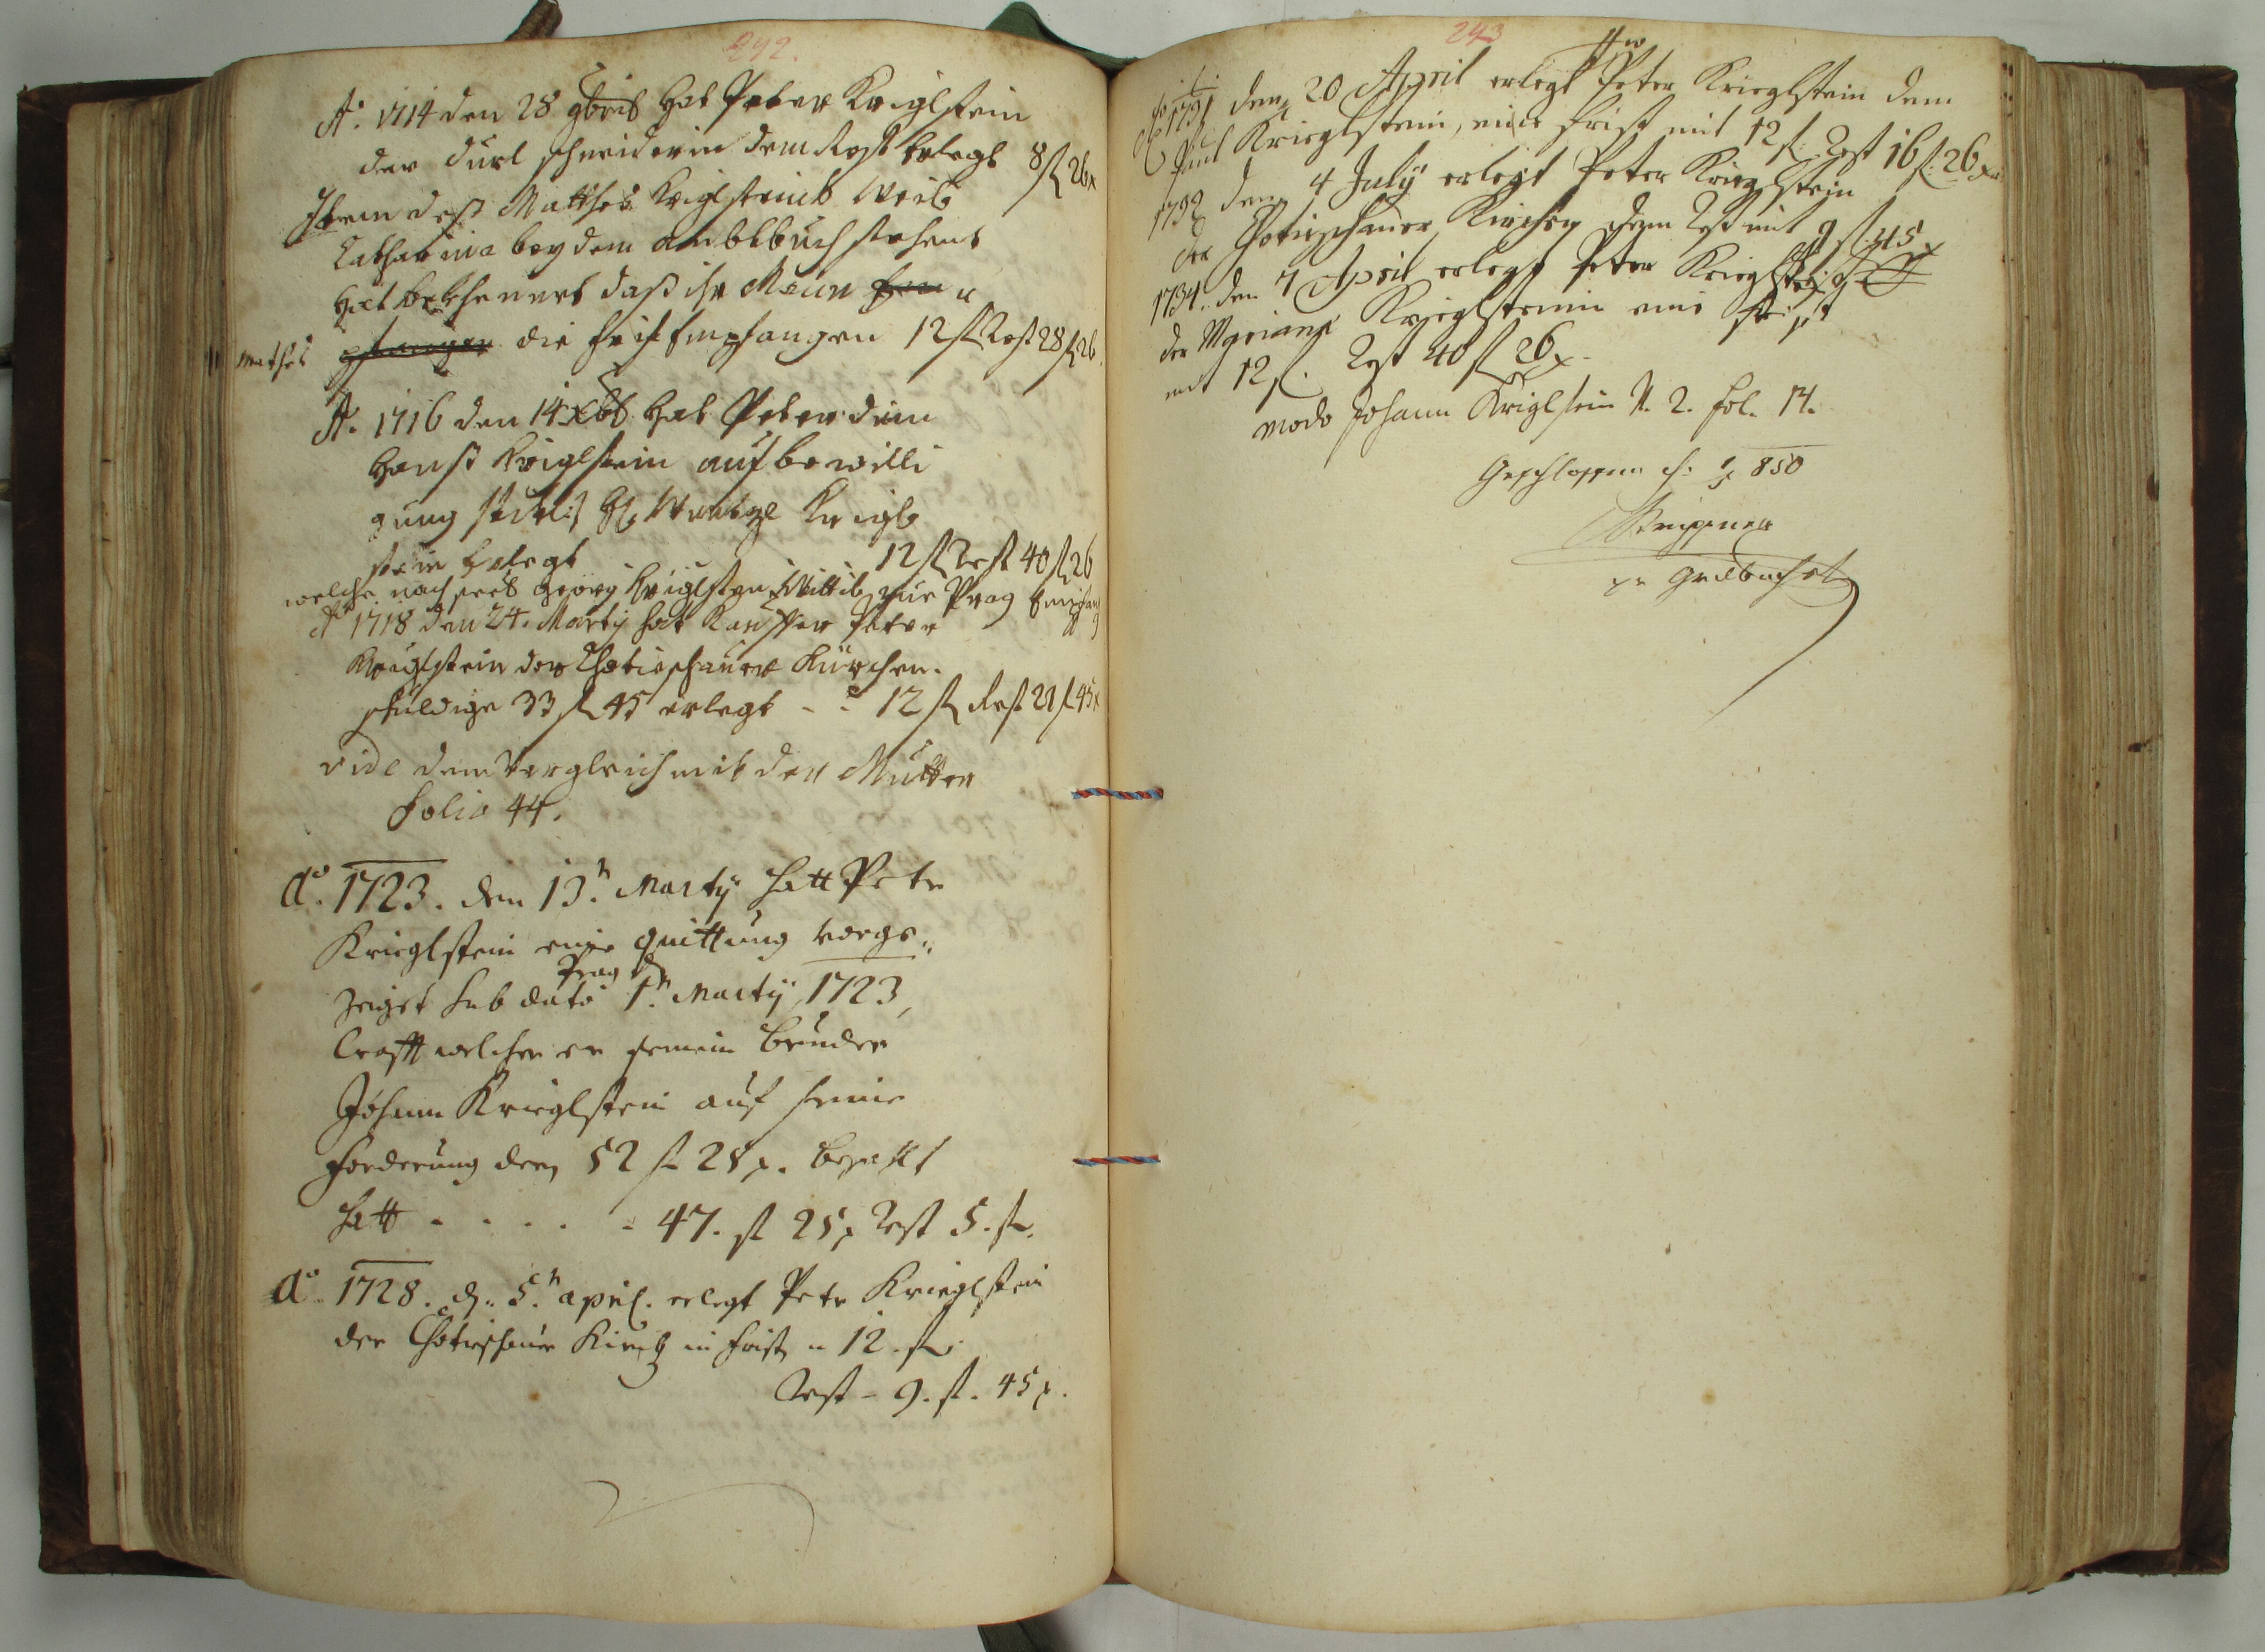 242.
A͠o. 1714 den 28 9bris hat Peter Kriglstein
der Durl schneiderin dem Rest Erlegt 8 fl 26 x
Item deß Matthes Kriglsteins Weib
Catharina bey dem ambtbuch stehent
hat bekhennet daß ihr Mann
Mathes die frist Empfangen 12 fl Rest 28 fl 26
A͠o. 1716 den 14 Xbr hat Peter dem
Hanß Kriglstein auf bewilli
gung Wentzl Krigl
stein Erlegt 12 fl Rest 40 fl 26
welche nach Georg Kriglstein Wittib zue Prag Empfang
Ao 1718 den 24. Marty hat Kauffer Peter
Krieglstein der Chotieschauer Kürchen
schuldige 33 fl 45 erlegt - - 12 fl Rest 21 fl 45 x
vide dem Vergleich mit der Mutter
Folio 44.
Ao. 1723. den 13.n Marty hatt Peter
Krieglstein eine quittung vorge¨
Prag
zeiget sub dato 1.n Marty 1723,
Crafft welcher er seinem Bruder
Johann Krieglstein auf seine
forderung deren 52 fl 25 x. bezahlt
hatt - - - - - 47. fl 25 x Rest 5. fl.
Ao. 1728. d. 5.n april. erlegt Peter Krieglstein
der Chotieschauer Kirch in frist 12. fl
Rest - 9. fl. 45 x.
243
Ao 1731 den 20 April erlegt Peter Krieglstein dem
Paul Krieglstein, eine frist mit 12 fl. Rest 16 fl. 26 x.
1732 den 4 July erlegt Peter Krieglstein
der Chotieschauer Kirchen dem Rest mit 9 fl. 45 x
1734. den 7 April erlegt Peter Krieglstein
der Mariana Krieglsteinin eine frist
mit 12 fl. Rest 40 fl 26 x.
modo Johann Kriglstein N. 2. fol. 14.
Geschlossen d. 850